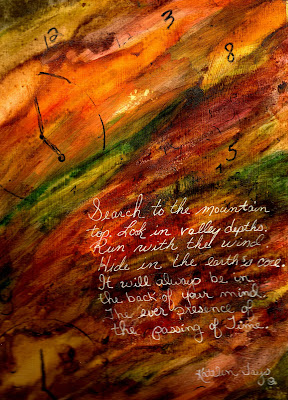 12
3
8
5
Search to the mountain
top. Look in valley depths.
Run with the wind.
Hide in the earth's core.
It will always be in
the back of your mind.
The ever presence of
the passing of Time.